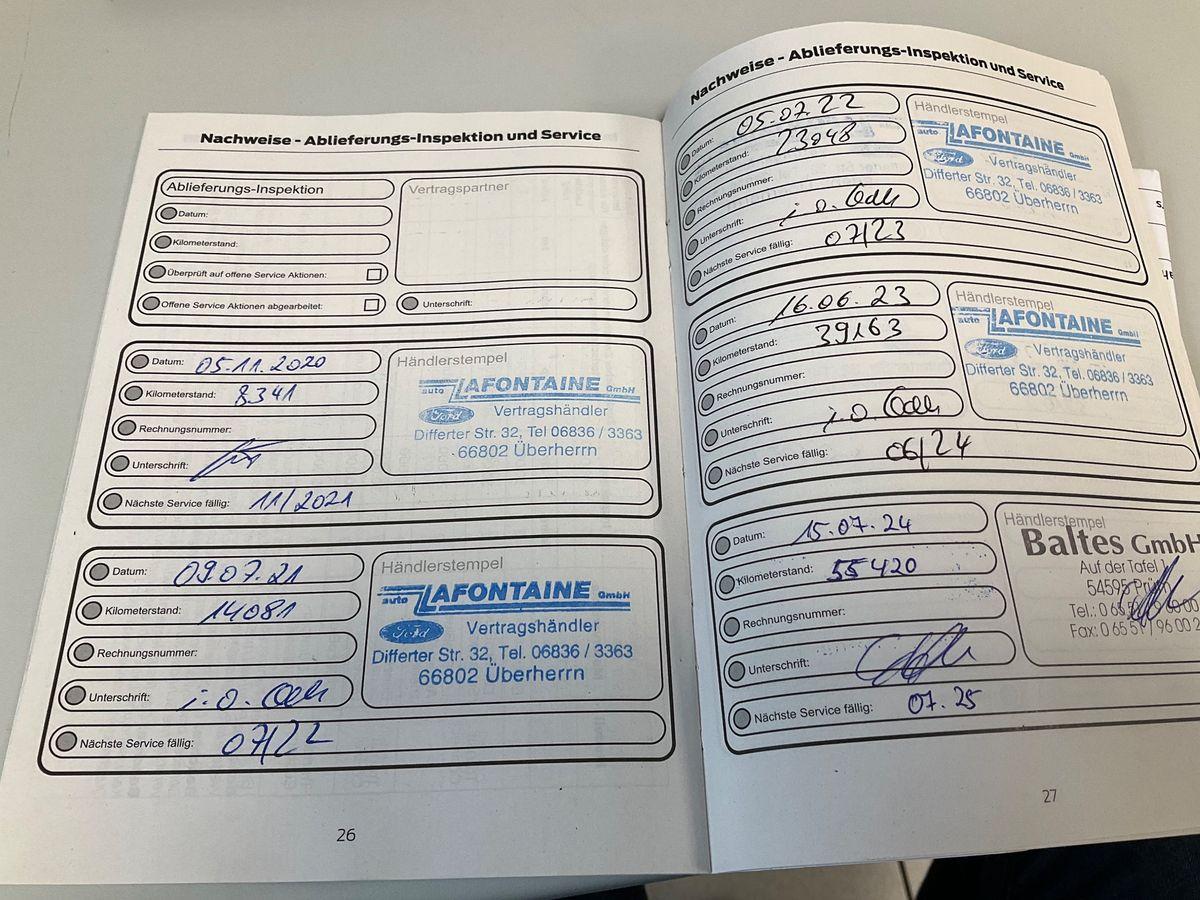 Nachweise - Ablieferungs-Inspektion und Service
Ablieferungs-Inspektion
Vertragspartner
Datum:
Kilometerstand:
Überprüft auf offene Service Aktionen:
Offene Service Aktionen abgearbeitet:
Unterschrift:
Datum: 05.11.2020
Händlerstempel
Kilometerstand: 8341
auto LAFONTAINE GmbH
Ford Vertragshändler
Rechnungsnummer:
Differter Str. 32, Tel 06836 / 3363
66802 Überherrn
Unterschrift:
Nächste Service fällig: 11/2021
Datum: 09.07.21
Händlerstempel
Kilometerstand: 14081
auto LAFONTAINE GmbH
Ford Vertragshändler
Rechnungsnummer:
Differter Str. 32, Tel. 06836 / 3363
66802 Überherrn
Unterschrift: i.o.
Nächste Service fällig: 07/22
26
Nachweise - Ablieferungs-Inspektion und Service
Datum: 05.07.22
Händlerstempel
Kilometerstand: 23048
auto LAFONTAINE GmbH
Ford Vertragshändler
Rechnungsnummer:
Differter Str. 32, Tel. 06836 / 3363
66802 Überherrn
Unterschrift: i.o.
Nächste Service fällig: 07/23
Datum: 16.06.23
Händlerstempel
Kilometerstand: 39163
auto LAFONTAINE GmbH
Ford Vertragshändler
Rechnungsnummer:
Differter Str. 32, Tel. 06836 / 3363
66802 Überherrn
Unterschrift: i.o.
Nächste Service fällig: 06/24
Datum: 15.07.24
Händlerstempel
Baltes GmbH
Kilometerstand: 55420
Auf der Tafel
54595 Prüm
Rechnungsnummer:
Tel.: 0 65 51 / 9 60 00
Fax: 0 65 51 / 96 00 2
Unterschrift:
Nächste Service fällig: 07.25
27